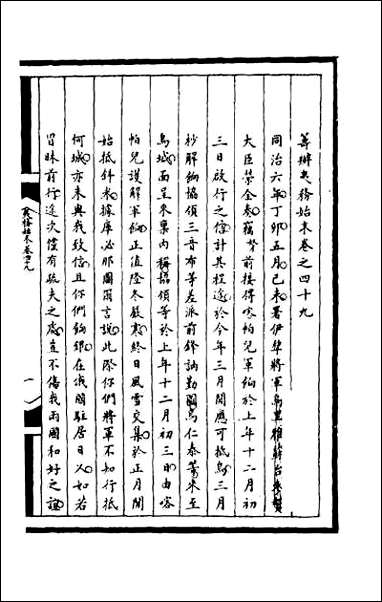 籌辦夷務始末卷之四十九
同治六年丁卯五月己未署伊犂將軍烏里雅蘇台參贊
大臣榮全奏竊前接得喀帕兒軍餉於上年十二月初
三日啟行之信計其程途於今年三月間應可抵烏三月
杪解餉協領三音布等差派前鋒訥勤圖烏仁泰等來至
烏城面呈來稟内稱協領等於上年十二月初三日由喀
帕兒護解軍餉正值隆冬嚴寒終日風雪交集於正月間
始抵斜米據庫必那圖爾言說此際你們將軍不知行抵
何城亦未與我致信且你們餉銀在俄關駐居日久如若
冒昧前行途次儻有疏失之處豈不傷我兩國和好之誼
夷務始末卷四十九
一